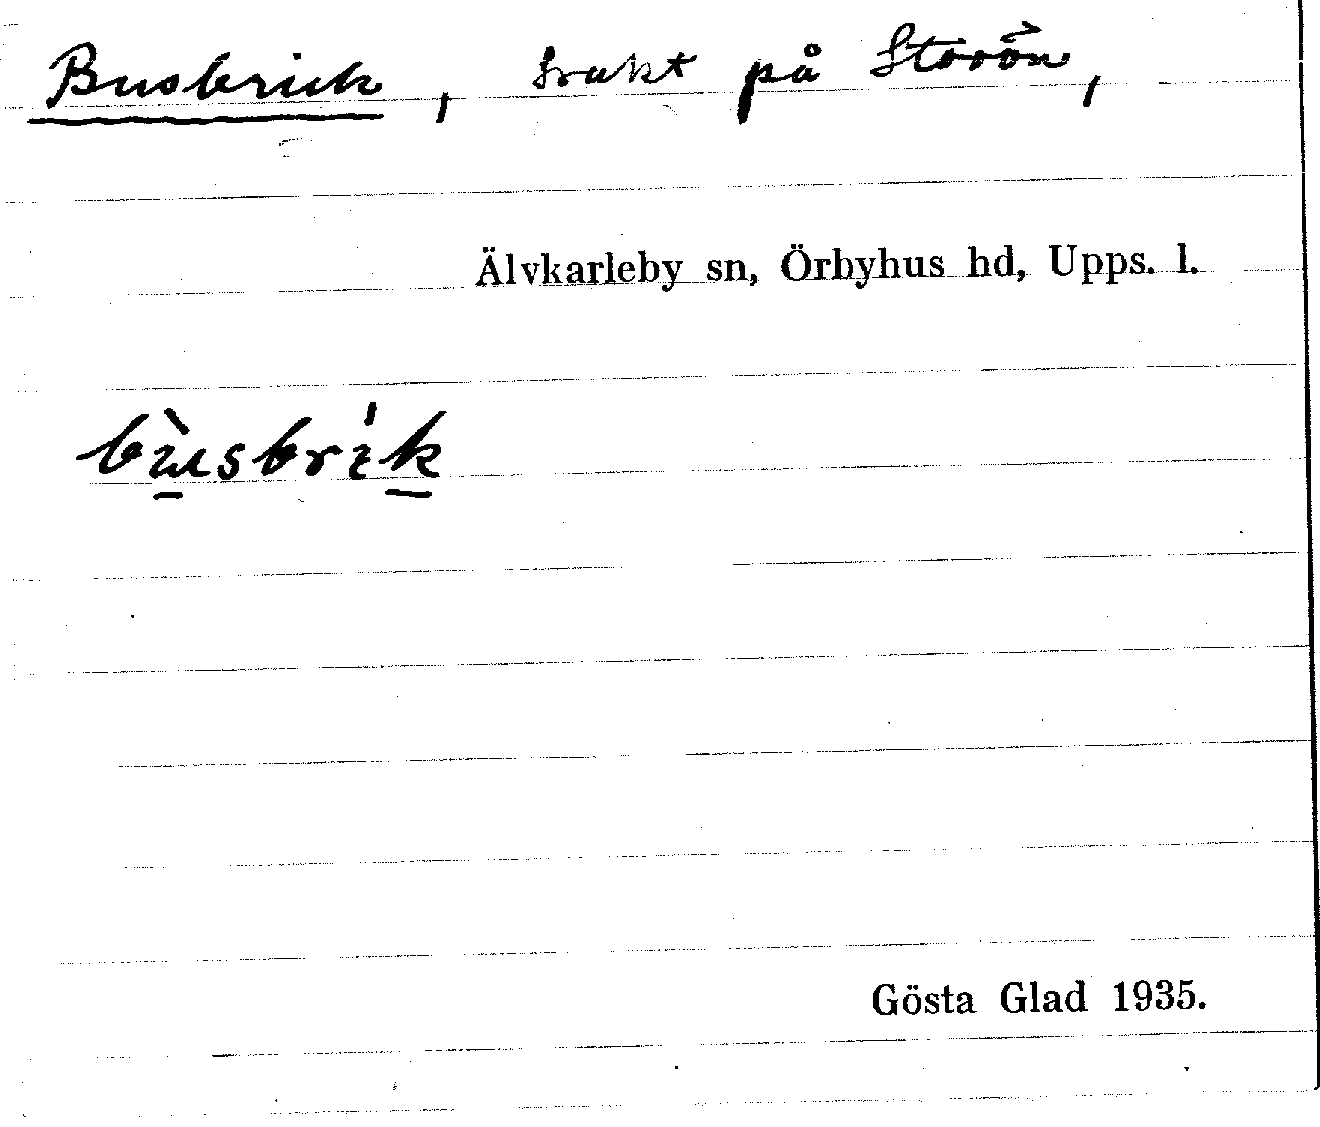 Busbrick, trakt på Storön,
Älvkarleby sn, Örbyhus hd, Upps. l.
bùsbrik
Gösta Glad 1935.